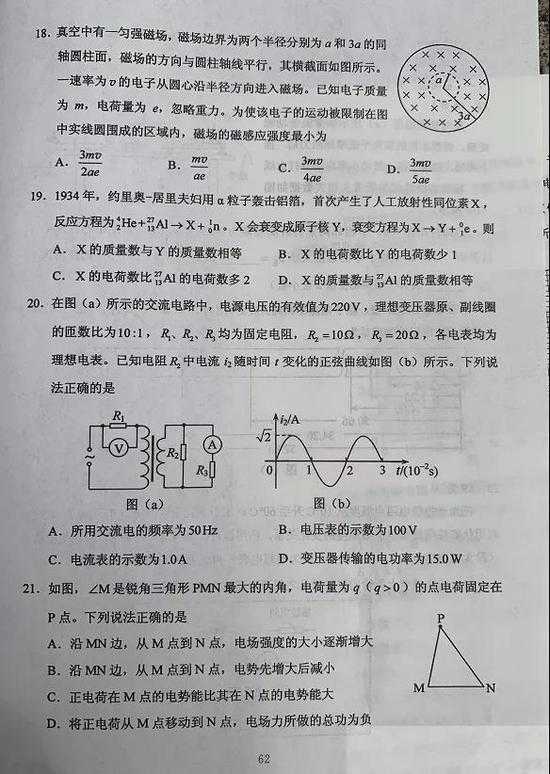 18. 真空中有一匀强磁场，磁场边界为两个半径分别为 a 和 3a 的同
轴圆柱面，磁场的方向与圆柱轴线平行，其横截面如图所示。
一速率为 v 的电子从圆心沿半径方向进入磁场。已知电子质量
为 m，电荷量为 e，忽略重力。为使该电子的运动被限制在图
中实线圆围成的区域内，磁场的磁感应强度最小为
a
3a
A. 3mv/2ae B. mv/ae C. 3mv/4ae D. 3mv/5ae
19. 1934 年，约里奥-居里夫妇用 α 粒子轰击铝箔，首次产生了人工放射性同位素 X，
反应方程为 ⁴₂He+²⁷₁₃Al→X+¹₀n。X 会衰变成原子核 Y，衰变方程为 X→Y+⁰₁e。则
A. X 的质量数与 Y 的质量数相等 B. X 的电荷数比 Y 的电荷数少 1
C. X 的电荷数比 ²⁷₁₃Al 的电荷数多 2 D. X 的质量数与 ²⁷₁₃Al 的质量数相等
20. 在图（a）所示的交流电路中，电源电压的有效值为 220V，理想变压器原、副线圈
的匝数比为 10:1，R₁、R₂、R₃ 均为固定电阻，R₂=10Ω，R₃=20Ω，各电表均为
理想电表。已知电阻 R₂ 中电流 i₂ 随时间 t 变化的正弦曲线如图（b）所示。下列说
法正确的是
R₁
V
~
R₂
A
R₃
图（a）
i₂/A
√2
0 1 2 3 t/(10⁻²s)
图（b）
A. 所用交流电的频率为 50Hz B. 电压表的示数为 100V
C. 电流表的示数为 1.0A D. 变压器传输的电功率为 15.0W
21. 如图，∠M 是锐角三角形 PMN 最大的内角，电荷量为 q（q>0）的点电荷固定在
P 点。下列说法正确的是
A. 沿 MN 边，从 M 点到 N 点，电场强度的大小逐渐增大
B. 沿 MN 边，从 M 点到 N 点，电势先增大后减小
C. 正电荷在 M 点的电势能比其在 N 点的电势能大
D. 将正电荷从 M 点移动到 N 点，电场力所做的总功为负
P
M N
62